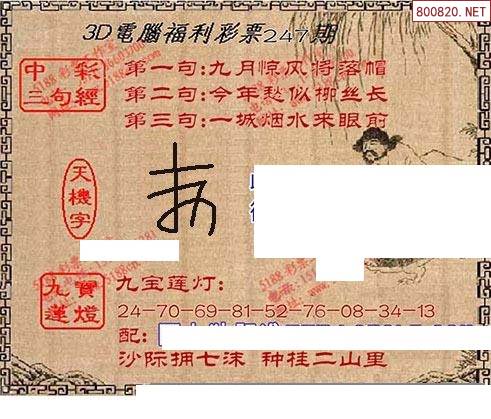 800820.NET
3D電腦福利彩票247期
中彩
三句經
第一句:九月惊风将落帽
第二句:今年愁似柳丝长
第三句:一城烟水来眼前
天機字
九寶
蓮燈
九宝莲灯:
24-70-69-81-52-76-08-34-13
配:
沙际拥七沫 种桂二山里